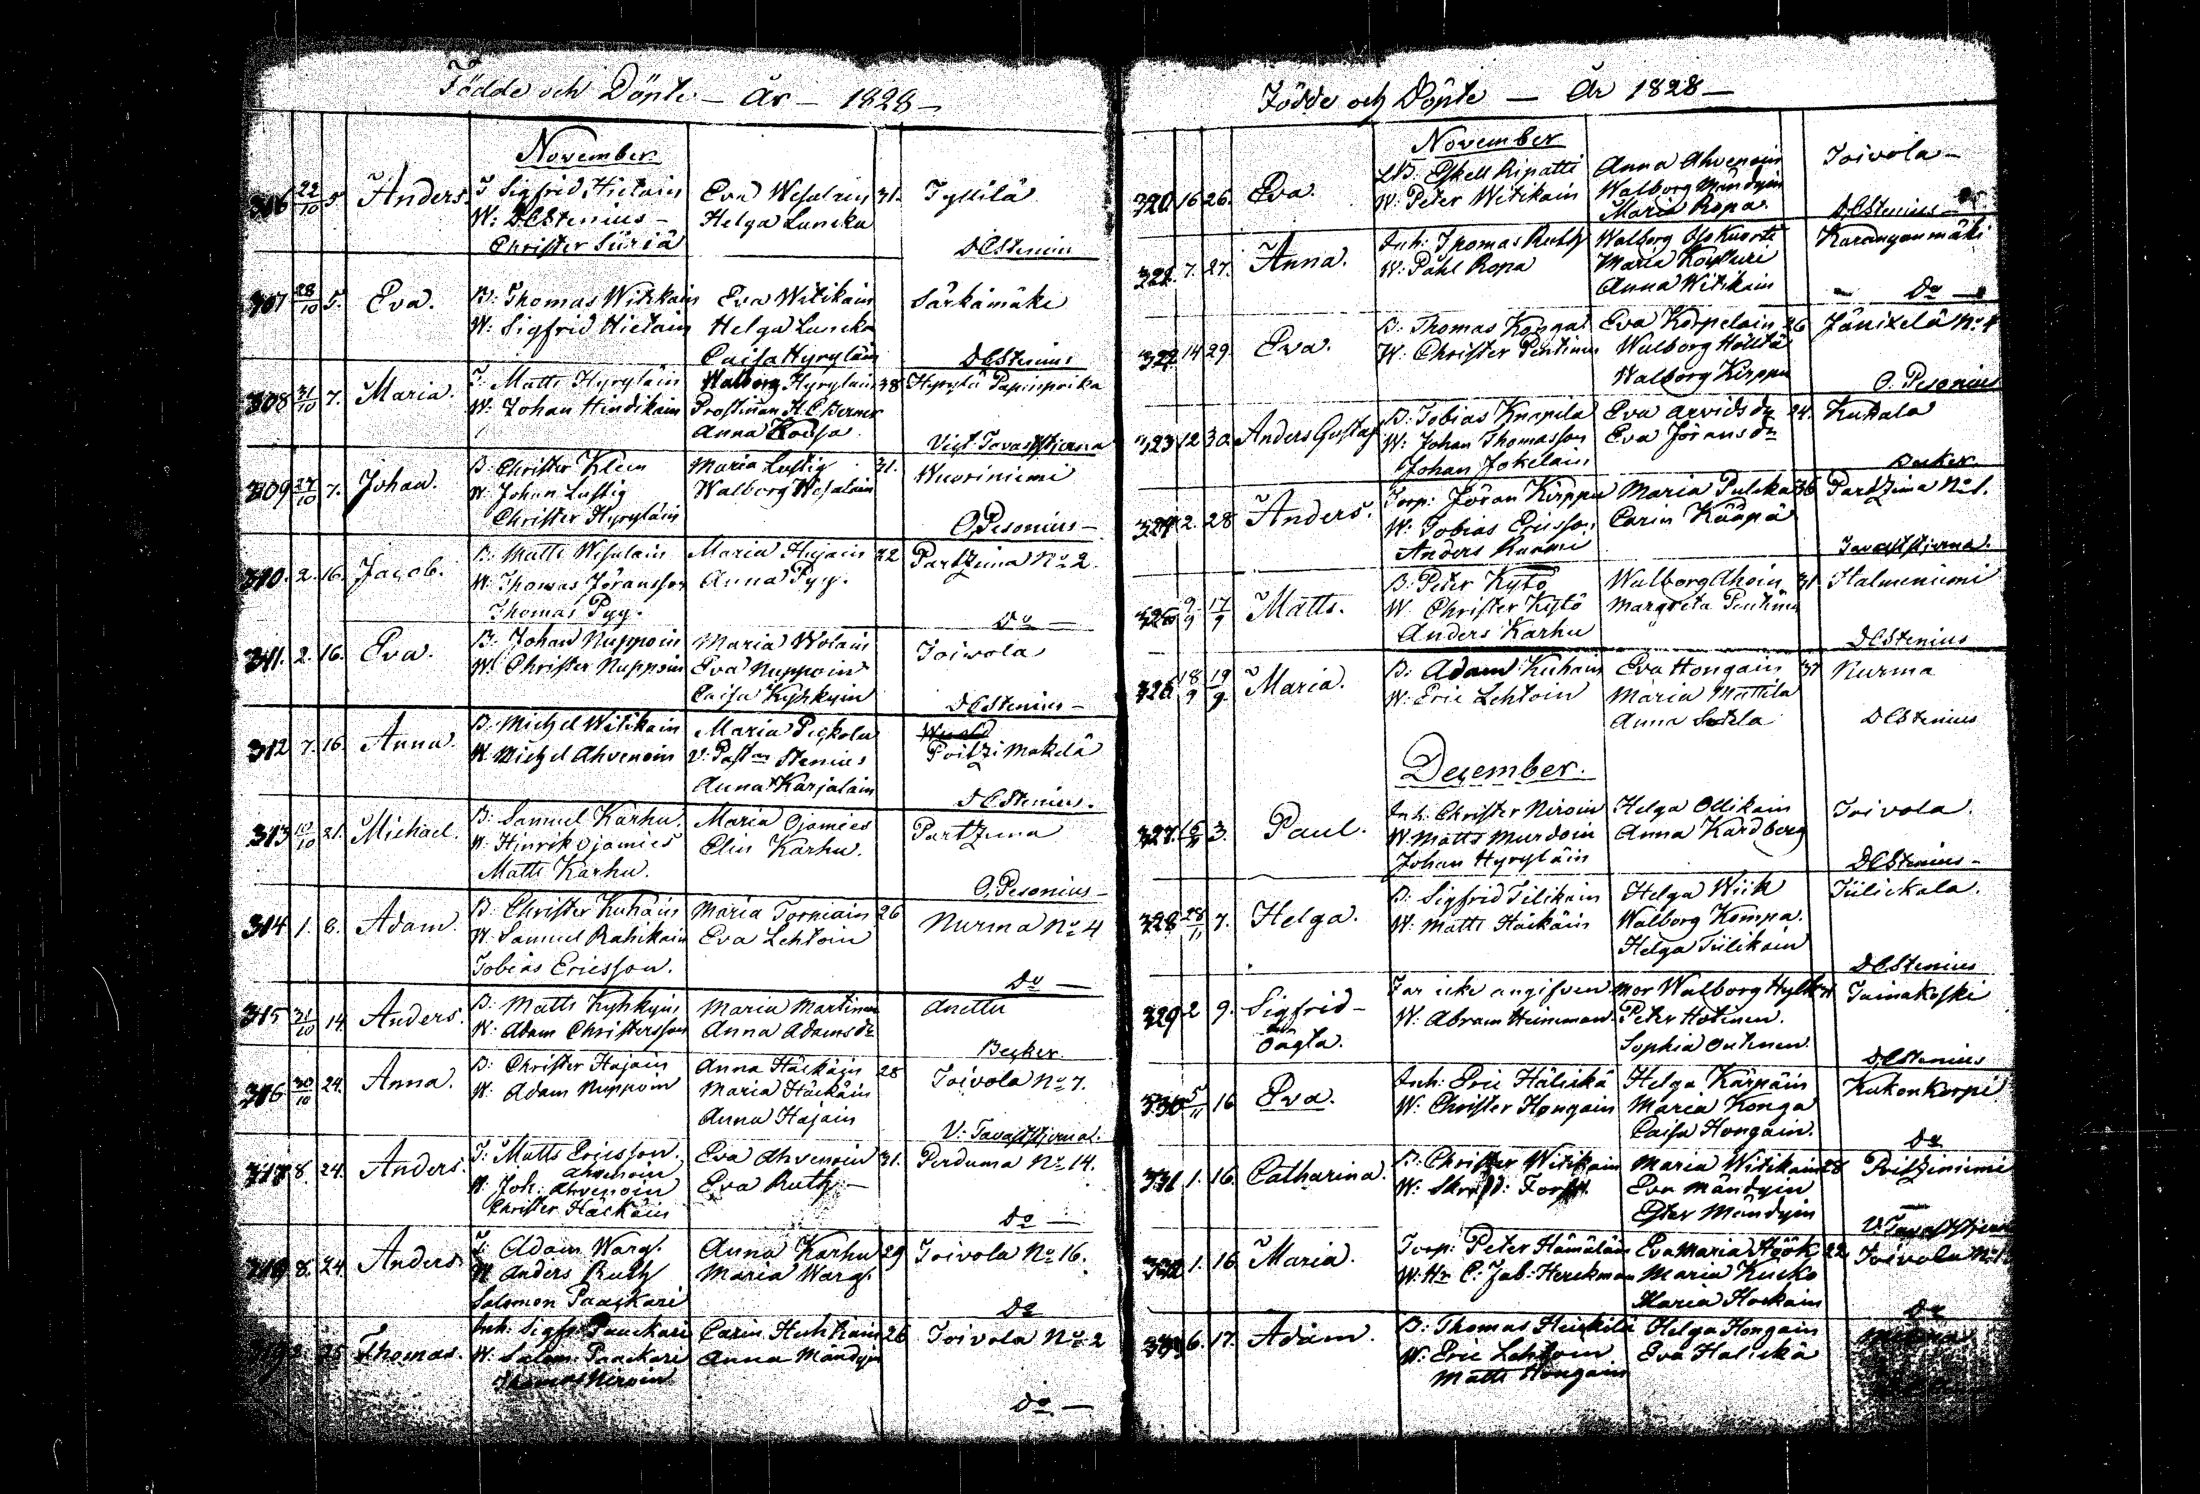 Födde och Döpte – År – 1828 –
November
306 22/10 5. Anders. T Sigfrid Hietain Eva Wesalain 31. Tyllilä
W: D C Stenius – Helga Luneka
Christer Siiriä D C Stenius
307 28/10 5. Eva. B: Thomas Witikain Eva Witikain Särkämäki
W: Sigfrid Hietain Helga Luneka
Caisa Hyryläin D C Stenius
308 31/10 7. Maria. T. Matts Hyryläin Walborg Hyryläin 38 Hyrylä
W: Johan Hindikain Prostinan H. C. Berner
Anna Vict. Tavaststjerna
309 27/10 7. Johan. B. Christer Klem Maria Lustig 31. Wuoriniemi
W: Johan Lustig Walborg Wesalain
Christer Hyryläin O. Pesonius –
310. 2. 16. Jacob. B: Matts Wesalain Maria Hajain 22 Partzima No 2.
W: Thomas Jöransson Anna Pyy.
Thomas Pyy. Do –
311. 2. 16. Eva. B. Johan Nuppoin Maria Wolain Toivola
W: Christer Nuppoin Eva Nuppoin
Caisa Kyhkyin D C Stenius –
312 7. 16. Anna. B: Michel Witikain Maria Pickola
W. Michel Ahvenoin V: Past:an Stenius Poitzi Makelä
Anna Karjalain D C Stenius.
313 10/10 21. Michael. B: Samuel Karhu. Maria Ojamies Partzima
W: Hinrik Ojamies Elin Karhu.
Matts Karhu. O. Pesonius –
314 1. 8. Adam. B: Christer Kuhain Maria Torniain 26 Nurma No 4
W. Samuel Rahikain Eva Lehtoin
Tobias Ericsson. Do –
315 31/10 14. Anders. B: Matts Kyhkyin Maria Martinen Anettu
W: Adam Christersson Anna Adamsdr
Becker.
316 30/10 24. Anna. B: Christer Hajain Anna Häckäin 28 Toivola No 7.
W. Adam Nuppoin Maria Häckäin
Anna Hajain V: Tavaststjerna.
317 8. 24. Anders. T: Matts Ericsson. Eva Ahvenoin 31. Perduma No 14.
Ahvenoin
W. Joh: Ahvenoin Eva Ruth –
Christer Häckäin Do –
318 8. 24. Anders. T Adam Warg. Anna Karhu 29 Toivola No 16.
W Anders Ruth Maria Warg.
Salomon Paackari Do
319 2. 25 Thomas. Inh: Sigfr. Paackari Carin Huhtiain 26 Toivola No 2
W: Salom: Paackari Anna Mändyin
Thomas Niroin Do –
Födde och Döpte — År 1828 —
November
320 16 26. Eva. LB: Eskell Ripatti Anna Ahvenoin Toivola –
W: Peter Witikain Walborg Mändyin
Maria Ropa. D C Stenius –
321. 7. 27. Anna. Inh: Thomas Ruth Walborg Karangonmäki
W: Pahl Ropa Maria Koskuri
Anna Witikain – Do –
322 14 29. Eva. B: Thomas Konga Eva Korpelain 26 Jänixelä No 4
W: Christer Pentinen Walborg Hölttä
Walborg Kirppu O. Pesonius
323 12 30. Anders Gustaf B: Tobias Knapila Eva Arvidsdr 24. Kukala
W: Johan Thomasson Eva Jöransdr
Johan Jokelain Becker.
324 2. 28 Anders. Torp: Jöran Kirppu Maria Pulcka 36 Partzima No 1.
W: Tobias Ericsson Carin Kääpä
Anders Raami Tavaststjerna.
325 9/9 17/9 Matts. B: Peter Kytö Walborg Ahoin 31 Halmeniemi
W. Christer Kytö Margreta Pentinen
Anders Karhu D C Stenius
326 18/9 19/9. Maria. B: Adam Kuhain Eva Hongain 37 Nurma
W. Eric Lehtoin Maria Mattila
Anna D C Stenius
December.
327. 3. Paul. Inh: Christer Niroin Helga Ollikain Toivola.
W Matts Murdoin Anna Kardberg
Johan Hyryläin D C Stenius –
328 28/11 7. Helga. B: Sigfrid Tilikain Helga Wiik Tiilickala.
W. Matts Häckäin Walborg Kompa.
Helga Tiilikain D C Stenius
329 2 9. Sigfrid – Far icke angifven Mor Walborg Tainakoski
oägta. W. Abram Heinonen. Peter Hotinen.
Sophia Outinen. D C Stenius
330 5/11 16 Eva. Inh: Eric Hälickä Helga Kärpäin Kukonkorpi
W. Christer Hongain Maria Konga
Caisa Hongain. Do
331 1. 16. Catharina. B. Christer Witikain Maria Witikain 28 Poitziniemi
W. Eva Mändyin
Ester Mändyin V: Tavaststjerna
332 1. 16. Maria. Torp: Peter Hämäläin Eva Maria Höök 22. Toivola
W: Hr C: Jab: Herckman Maria Kucko
Maria Hockain Do
333 6. 17. Adam. B: Thomas Heickilä Helga Hongain
W: Eric Lehtoin Eva Halickä
Matts Hongain